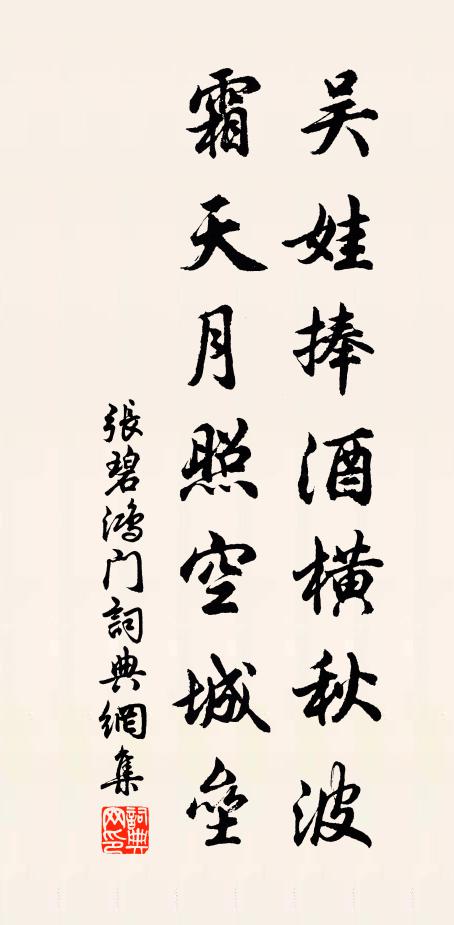 吴娃捧酒橫秋波
霜天月照空城壘
張碧鴻门詞典網集
詞典网印